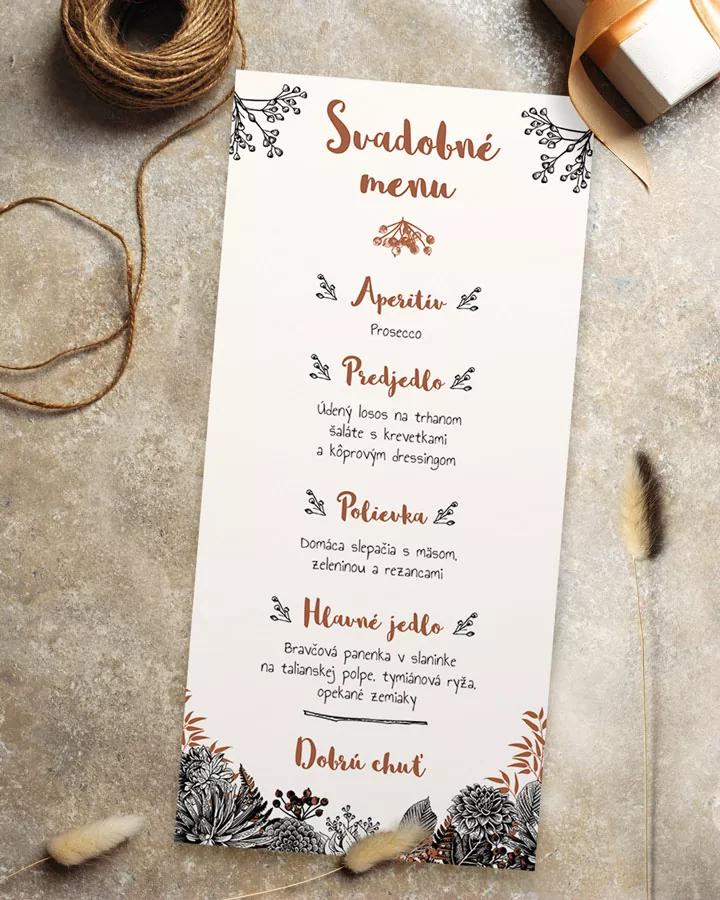 Svadobné
menu
Aperitív
Prosecco
Predjedlo
Údený losos na trhanom
šaláte s krevetkami
a kôprovým dressingom
Polievka
Domáca slepačia s mäsom,
zeleninou a rezancami
Hlavné jedlo
Bravčová panenka v slaninke
na talianskej polpe, tymiánová ryža,
opekané zemiaky
Dobrú chuť